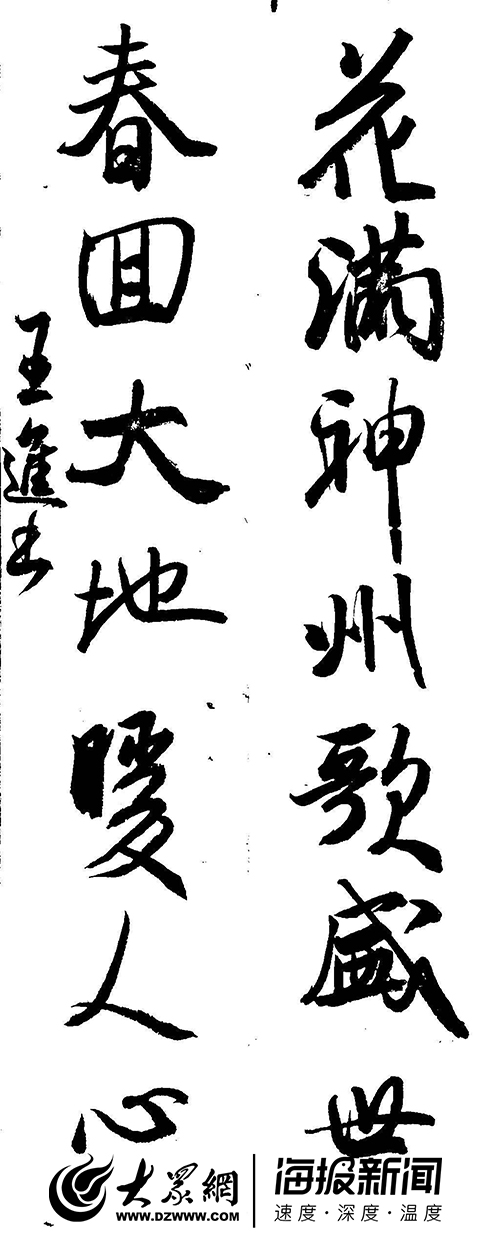 花满神州歌盛世
春回大地暖人心
王進书
大众網
WWW.DZWWW.COM
海报新闻
速度·深度·温度